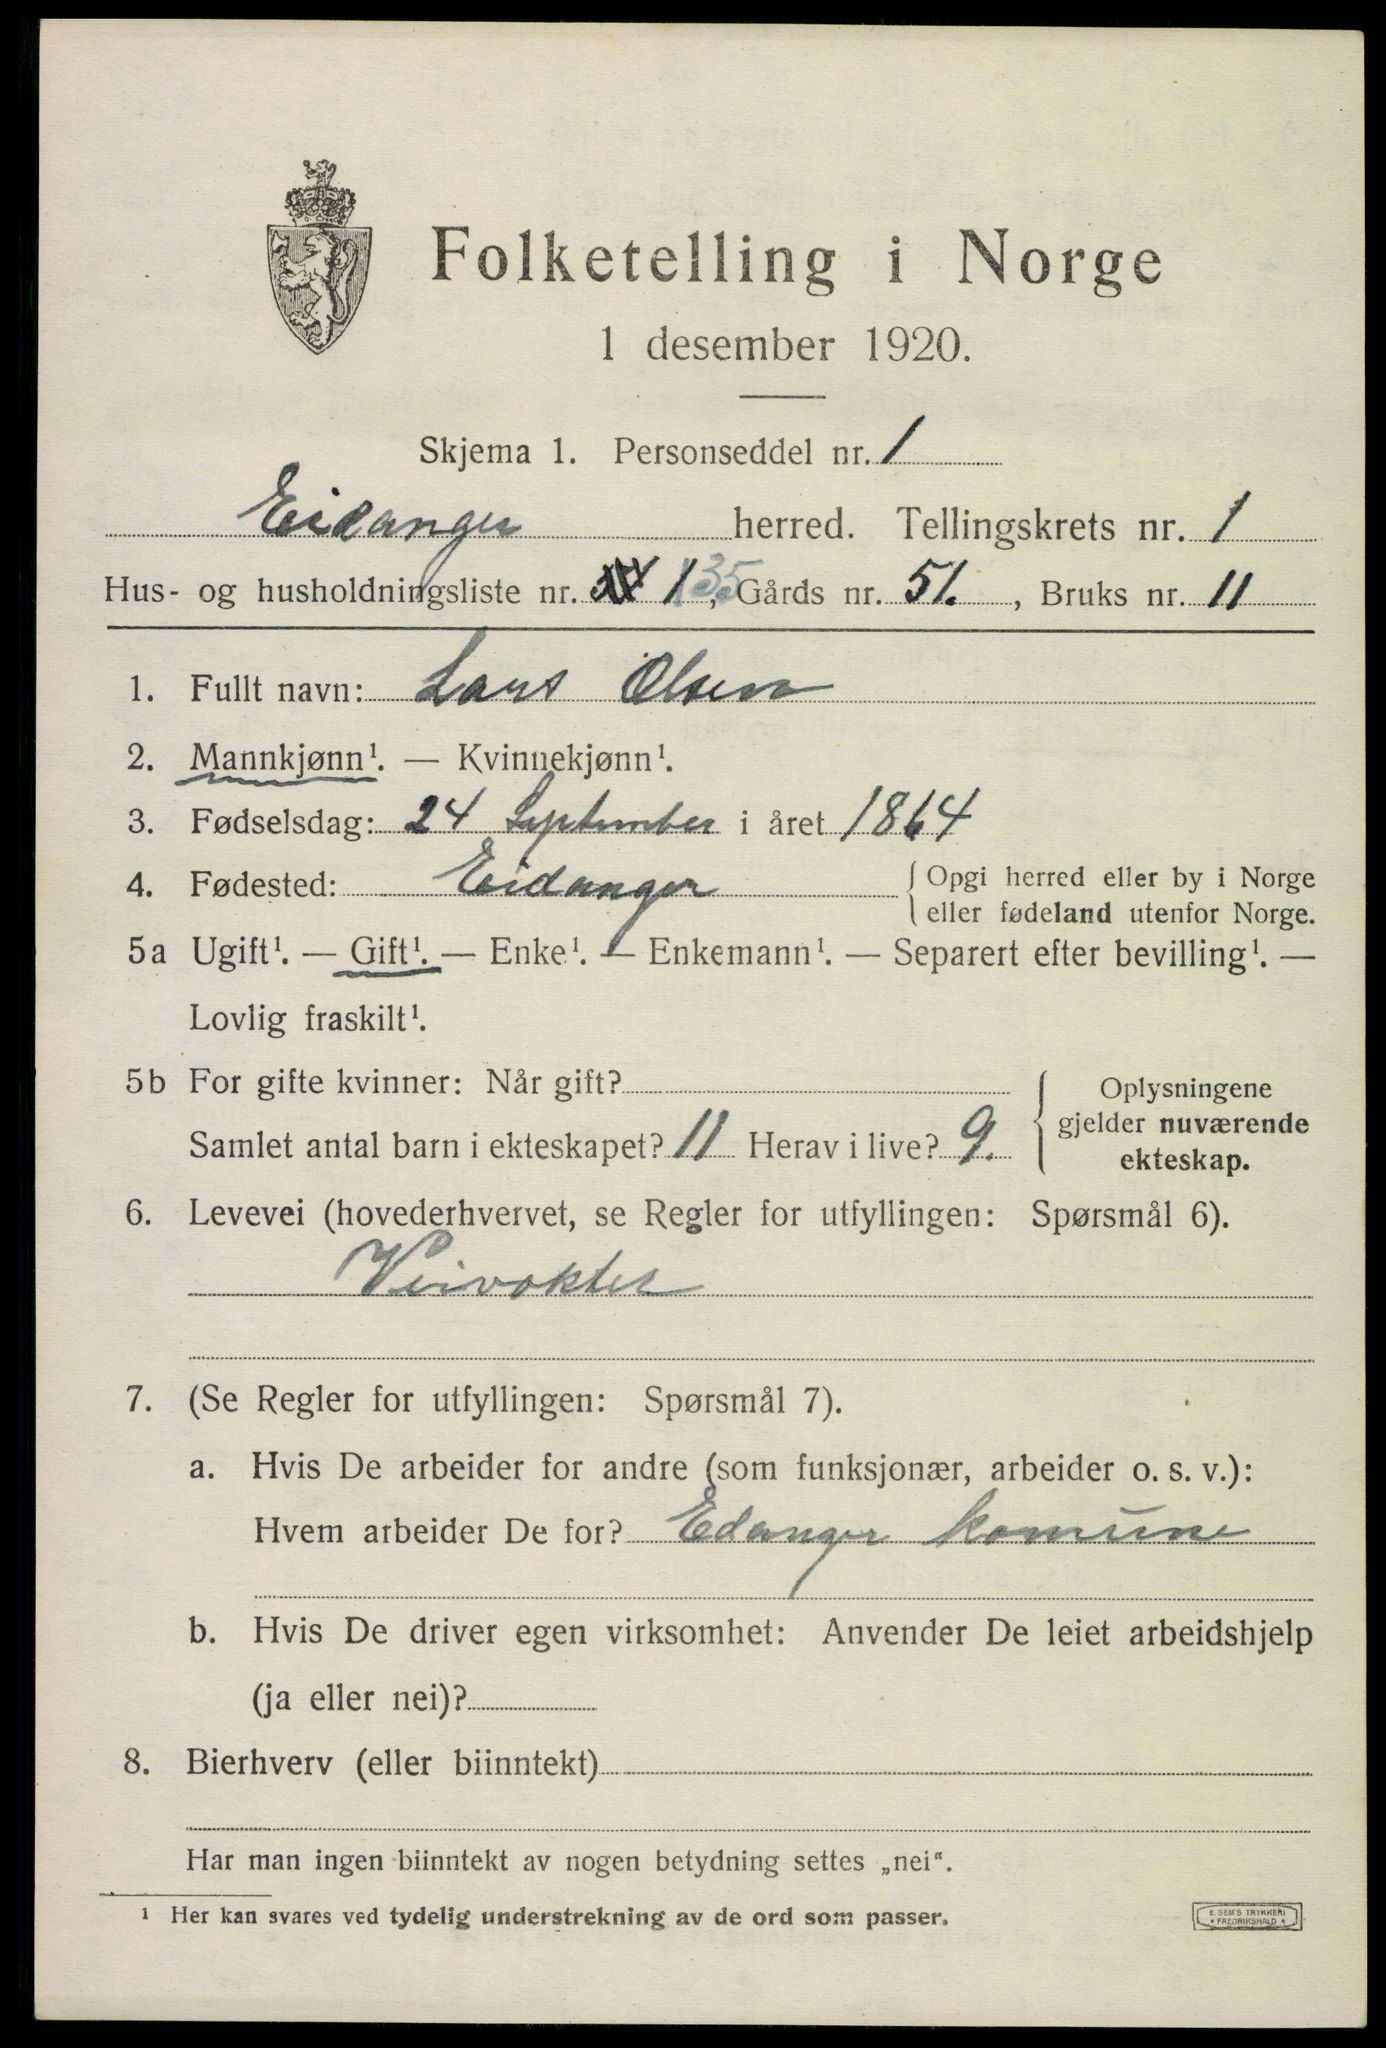 Folketelling i Norge
1 desember 1920.
Skjema 1. Personseddel nr. 1
Eidanger herred. Tellingskrets nr. 1
Hus- og husholdningsliste nr. 1 35, Gårds nr. 51., Bruks nr. 11
1. Fullt navn: Lars Olsen
2. Mannkjønn¹. — Kvinnekjønn¹.
3. Fødselsdag: 24 September i året 1864
4. Fødested: Eidanger { Opgi herred eller by i Norge
eller fødeland utenfor Norge.
5a Ugift¹. — Gift¹. — Enke¹. — Enkemann¹. — Separert efter bevilling¹. —
Lovlig fraskilt¹.
5b For gifte kvinner: Når gift?
Samlet antal barn i ekteskapet? 11 Herav i live? 9.
Oplysningene
gjelder nuværende
ekteskap.
6. Levevei (hovederhvervet, se Regler for utfyllingen: Spørsmål 6).
Veivokter
7. (Se Regler for utfyllingen: Spørsmål 7).
a. Hvis De arbeider for andre (som funksjonær, arbeider o. s. v.):
Hvem arbeider De for? Edanger komune
b. Hvis De driver egen virksomhet: Anvender De leiet arbeidshjelp
(ja eller nei)?
8. Bierhverv (eller biinntekt)
Har man ingen biinntekt av nogen betydning settes „nei“.
¹ Her kan svares ved tydelig understrekning av de ord som passer.
E. SEM'S TRYKKERI
* FREDRIKSHALD *